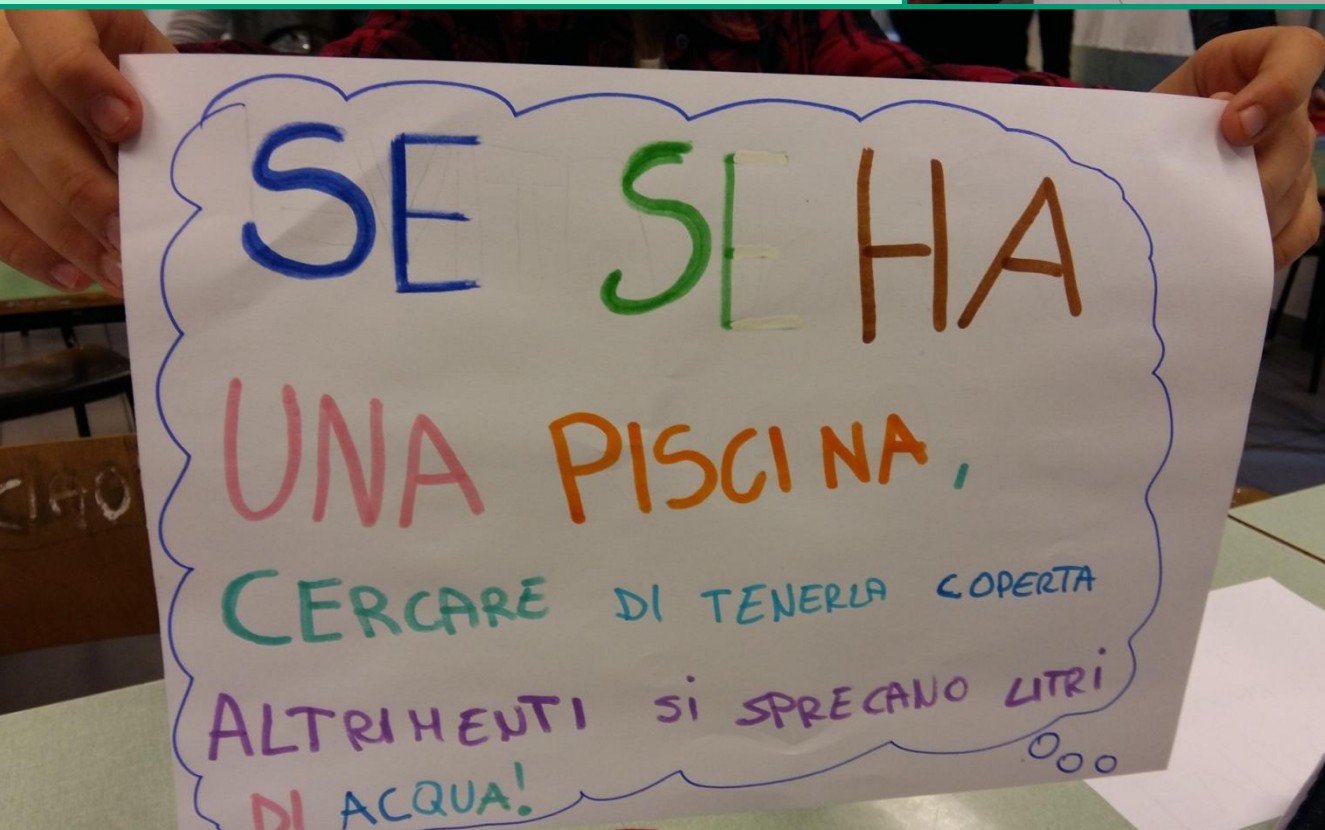 SE SI HA
UNA PISCINA,
CERCARE DI TENERLA COPERTA
ALTRIMENTI Si SPRECANO LITRi
DI ACQUA!
CIAO